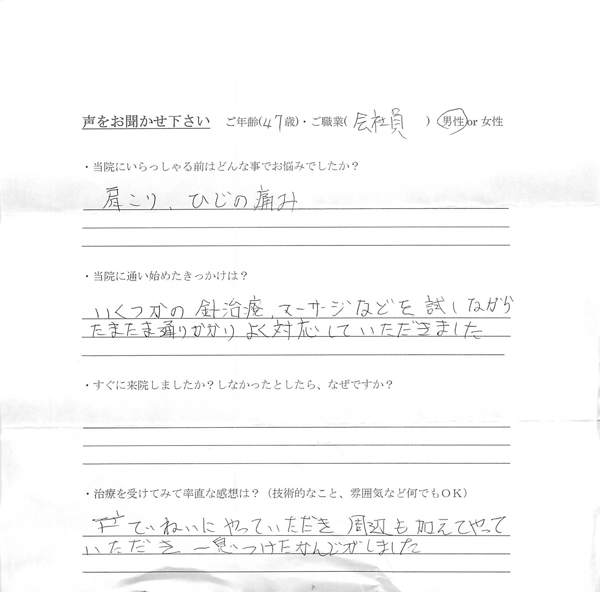 声をお聞かせ下さい ご年齢(47歳)・ご職業(会社員)男性or女性
・当院にいらっしゃる前はどんな事でお悩みでしたか？
肩こり、ひじの痛み
・当院に通い始めたきっかけは？
いくつかの針治療、マーサージなどを試しながら
たまたま通りかかりよく対応していただきました
・すぐに来院しましたか？しなかったとしたら、なぜですか？
・治療を受けてみて率直な感想は？（技術的なこと、雰囲気など何でもＯＫ）
ていねいにやっていただき 周辺も加えてやって
いただき 一息つけたかんじがしました